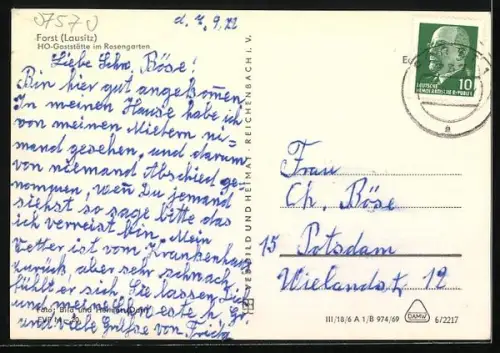 07570
d. 7. 9. 72
Forst (Lausitz)
HO-Gaststätte im Rosengarten
Liebe Schw. Böse!
Bin hier gut angekommen,
In meinen Hause habe ich
von meinen Mietern nie-
mand gesehen, und darum
von niemand Abschied ge-
nommen, wen Du jemand
siehst so sage bitte das
ich verreist bin. Mein
Vetter ist vom Krankenhaus
zurück aber sehr schwach,
fühlt er sich. Sie lassen Dich
und grüßen
und viele Grüße von
Foto: Bild und Heimat
VEB BILD UND HEIMAT · REICHENBACH I. V.
DEUTSCHE
DEMOKRATISCHE REPUBLIK
10
Frau
Ch. Böse
15 Potsdam
Wielandstr 12
III/18/6 A 1/B 974/69
DAMW
6/2217